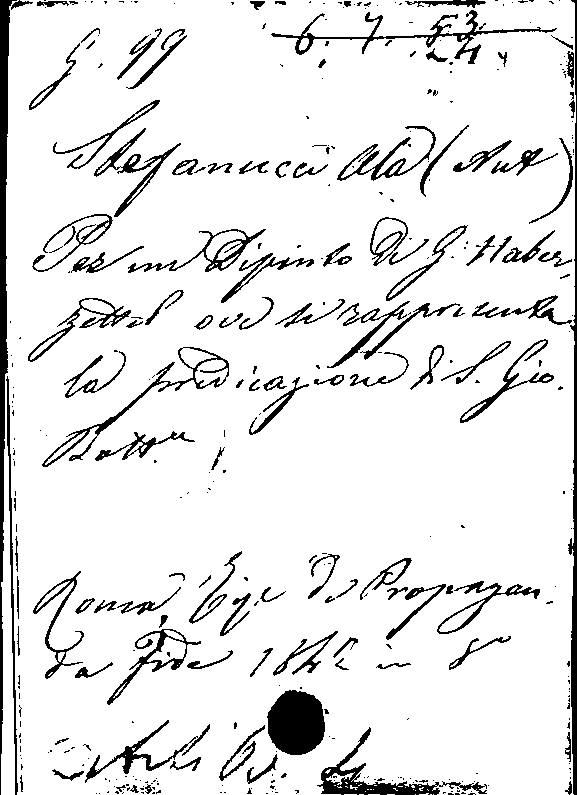 G. 99 6. 7. 53
24
Stefanucci Ala (Ant)
Per un Dipinto di G. Haber,
zettel ove si rappresenta
la predicazione di S. Gio.
Batt.
Roma, Tip. de Propagan.
da Fide 184 in 8°